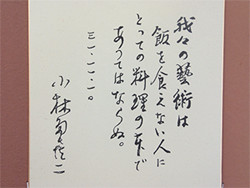 我々の藝術は
飯を食えない人に
とっての料理の本で
あってはならぬ。
小林多喜二